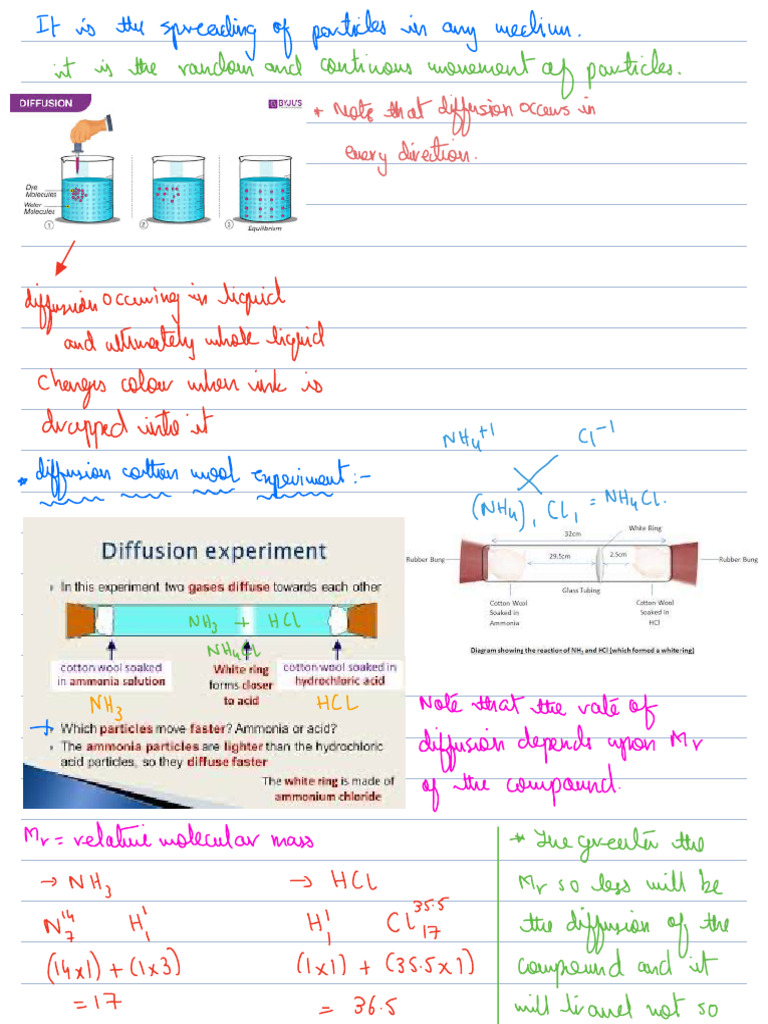 It is the spreading of particles in any medium.
it is the random and continous movement of particles.
DIFFUSION
BYJU'S
* Note that diffusion occurs in
every direction.
Dye
Molecules
Water
Molecules
1
2
3
Equilibrium
diffusion occuring in liquid
and ultimately whole liquid
changes colour when ink is
dropped into it
NH4+1 Cl-1
(NH4)1 CL1 = NH4CL.
* diffusion cotton wool experiment:-
Diffusion experiment
In this experiment two gases diffuse towards each other
NH3 + HCL
NH4CL
cotton wool soaked
in ammonia solution
White ring
forms closer
to acid
cotton wool soaked in
hydrochloric acid
NH3 HCL
Which particles move faster? Ammonia or acid?
The ammonia particles are lighter than the hydrochloric
acid particles, so they diffuse faster
The white ring is made of
ammonium chloride
32cm
White Ring
Rubber Bung
29.5cm
2.5cm
Rubber Bung
Glass Tubing
Cotton Wool
Soaked in
Ammonia
Cotton Wool
Soaked in
HCl
Diagram showing the reaction of NH3 and HCl (which formed a white ring)
Note that the rate of
diffusion depends upon Mr
of the compound.
Mr = relative molecular mass
→ NH3 → HCL
N 14 7 H 1 1 H 1 1 Cl 35.5 17
(14x1) + (1x3) (1x1) + (35.5x1)
= 17 = 36.5
* The greater the
Mr so less will be
the diffusion of the
compound and it
will travel not so